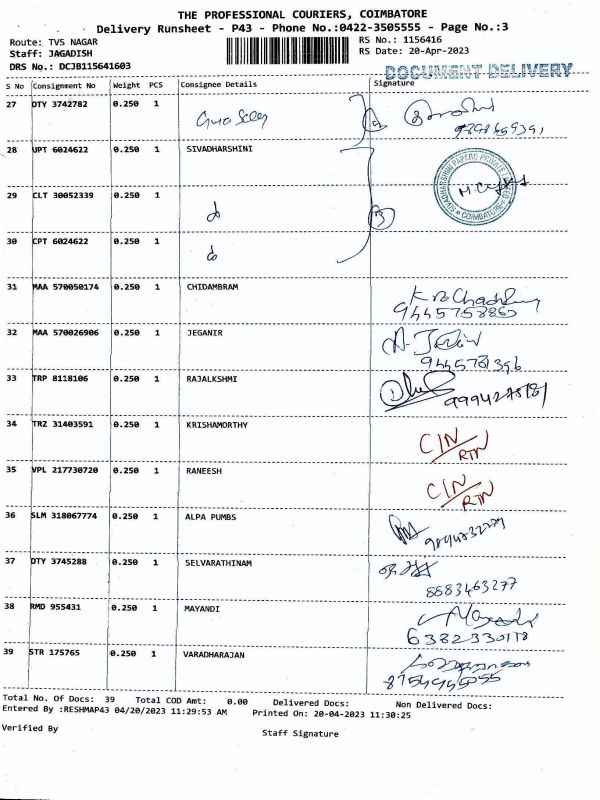 THE PROFESSIONAL COURIERS, COIMBATORE
Delivery Runsheet - P43 - Phone No.:0422-3505555 - Page No.:3
Route: TVS NAGAR RS No.: 1156416
Staff: JAGADISH RS Date: 20-Apr-2023
DRS No.: DCJB115641603
DOCUMENT DELIVERY
S No Consignment No Weight PCS Consignee Details Signature
27 DTY 3742782 0.250 1
28 UPT 6024622 0.250 1 SIVADHARSHINI
SIVADHARSHINI PAPERS PRIVATE LIMITED * COIMBATORE *
29 CLT 30052339 0.250 1
30 CPT 6024622 0.250 1
31 MAA 570050174 0.250 1 CHIDAMBRAM
32 MAA 570026906 0.250 1 JEGANIR
33 TRP 8118106 0.250 1 RAJALKSHMI
34 TRZ 31403591 0.250 1 KRISHAMORTHY CIN/RTN
35 VPL 217730720 0.250 1 RANEESH CIN/RTN
36 SLM 318067774 0.250 1 ALPA PUMBS
37 DTY 3745288 0.250 1 SELVARATHINAM
8883463277
38 RMD 955431 0.250 1 MAYANDI
39 STR 175765 0.250 1 VARADHARAJAN
Total No. Of Docs: 39 Total COD Amt: 0.00 Delivered Docs: Non Delivered Docs:
Entered By :RESHMAP43 04/20/2023 11:29:53 AM Printed On: 20-04-2023 11:30:25
Verified By Staff Signature